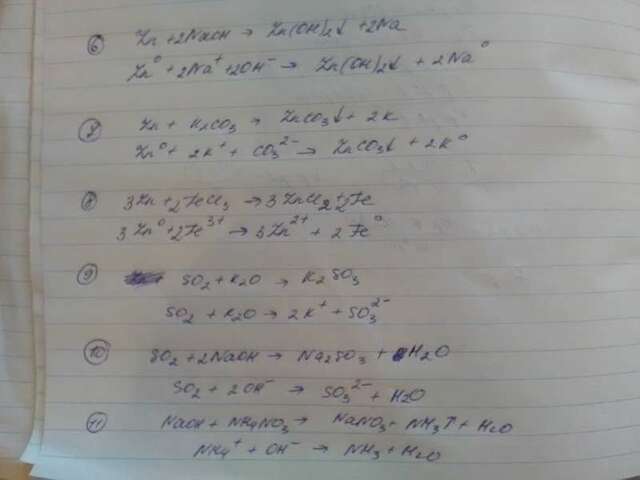 6 Zn + 2NaOH → Zn(OH)2↓ + 2Na
Zn⁰ + 2Na⁺ + 2OH⁻ → Zn(OH)2↓ + 2Na⁰
Zn + K2CO3 → ZnCO3↓ + 2K
Zn⁰ + 2K⁺ + CO3²⁻ → ZnCO3↓ + 2K⁰
8 3Zn + 2FeCl3 → 3ZnCl2 + 2Fe
3Zn⁰ + 2Fe³⁺ → 3Zn²⁺ + 2Fe⁰
9 SO2 + K2O → K2SO3
SO2 + K2O → 2K⁺ + SO3²⁻
10 SO2 + 2NaOH → Na2SO3 + H2O
SO2 + 2OH⁻ → SO3²⁻ + H2O
11 NaOH + NH4NO3 → NaNO3 + NH3↑ + H2O
NH4⁺ + OH⁻ → NH3 + H2O